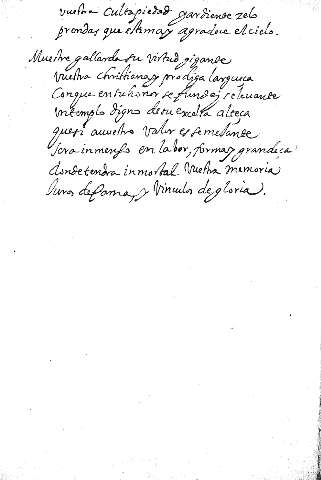 vuestra Culta piedad y ardiente zelo
prendas que estima y agradece el cielo.
Muestre gallarda su virtud gigante
vuestra Christiana y prodiga largueça
Con que en su honor se funda y se levante
un templo digno de su excelsa alteça
que si a vuestro valor es semejante
sera inmenso en labor, forma y grandeça
donde tendra inmortal vuestra memoria
luros de fama, y Vinculos de gloria.